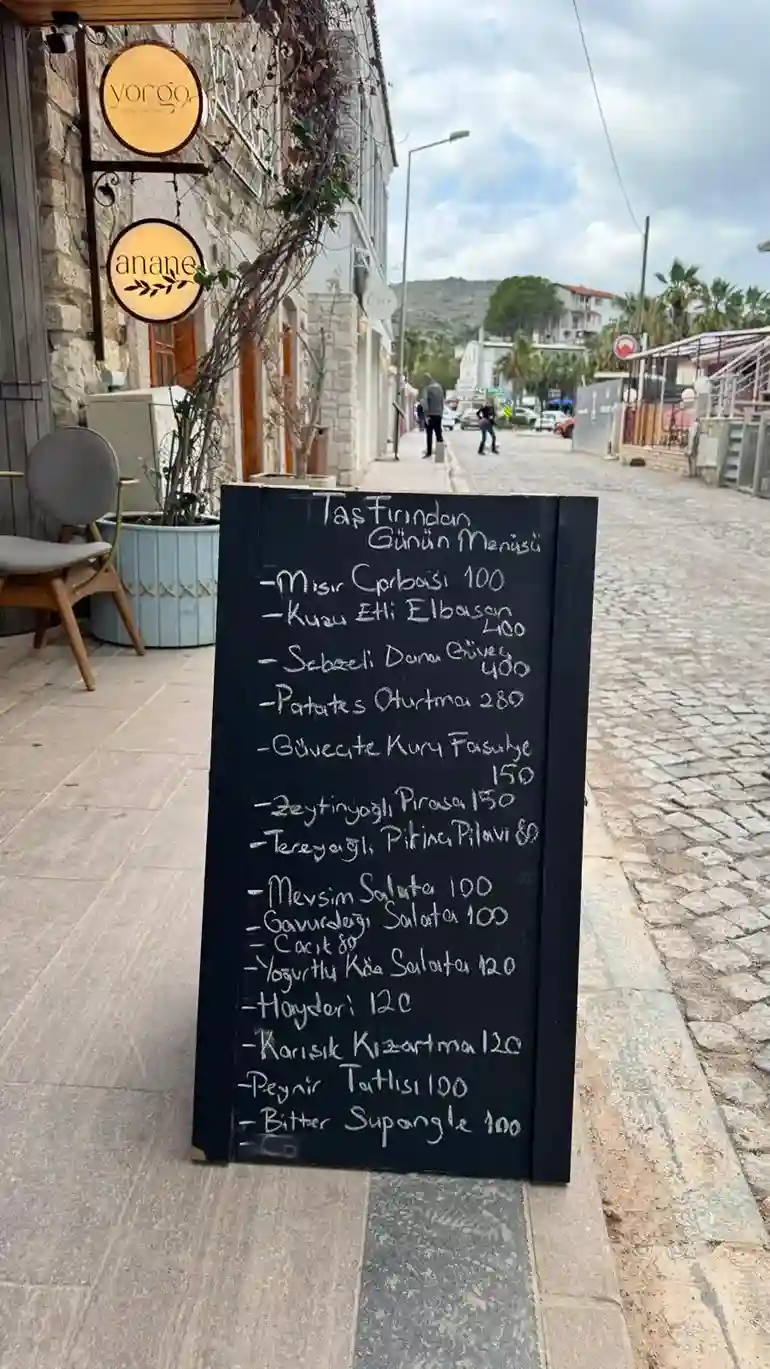 yorgo
anane
Taş Fırından
Günün Menüsü
-Mısır Çorbası 100
-Kuzu Etli Elbasan
400
-Sebzeli Dana Güveç
400
-Patates Oturtma 280
-Güveçte Kuru Fasulye
150
-Zeytinyağlı Pırasa 150
-Tereyağlı Pirinç Pilavı 80
-Mevsim Salata 100
-Gavurdağı Salata 100
-Cacık 80
-Yoğurtlu Köz Salata 120
-Haydari 120
-Karışık Kızartma 120
-Peynir Tatlısı 100
-Bitter Supangle 100